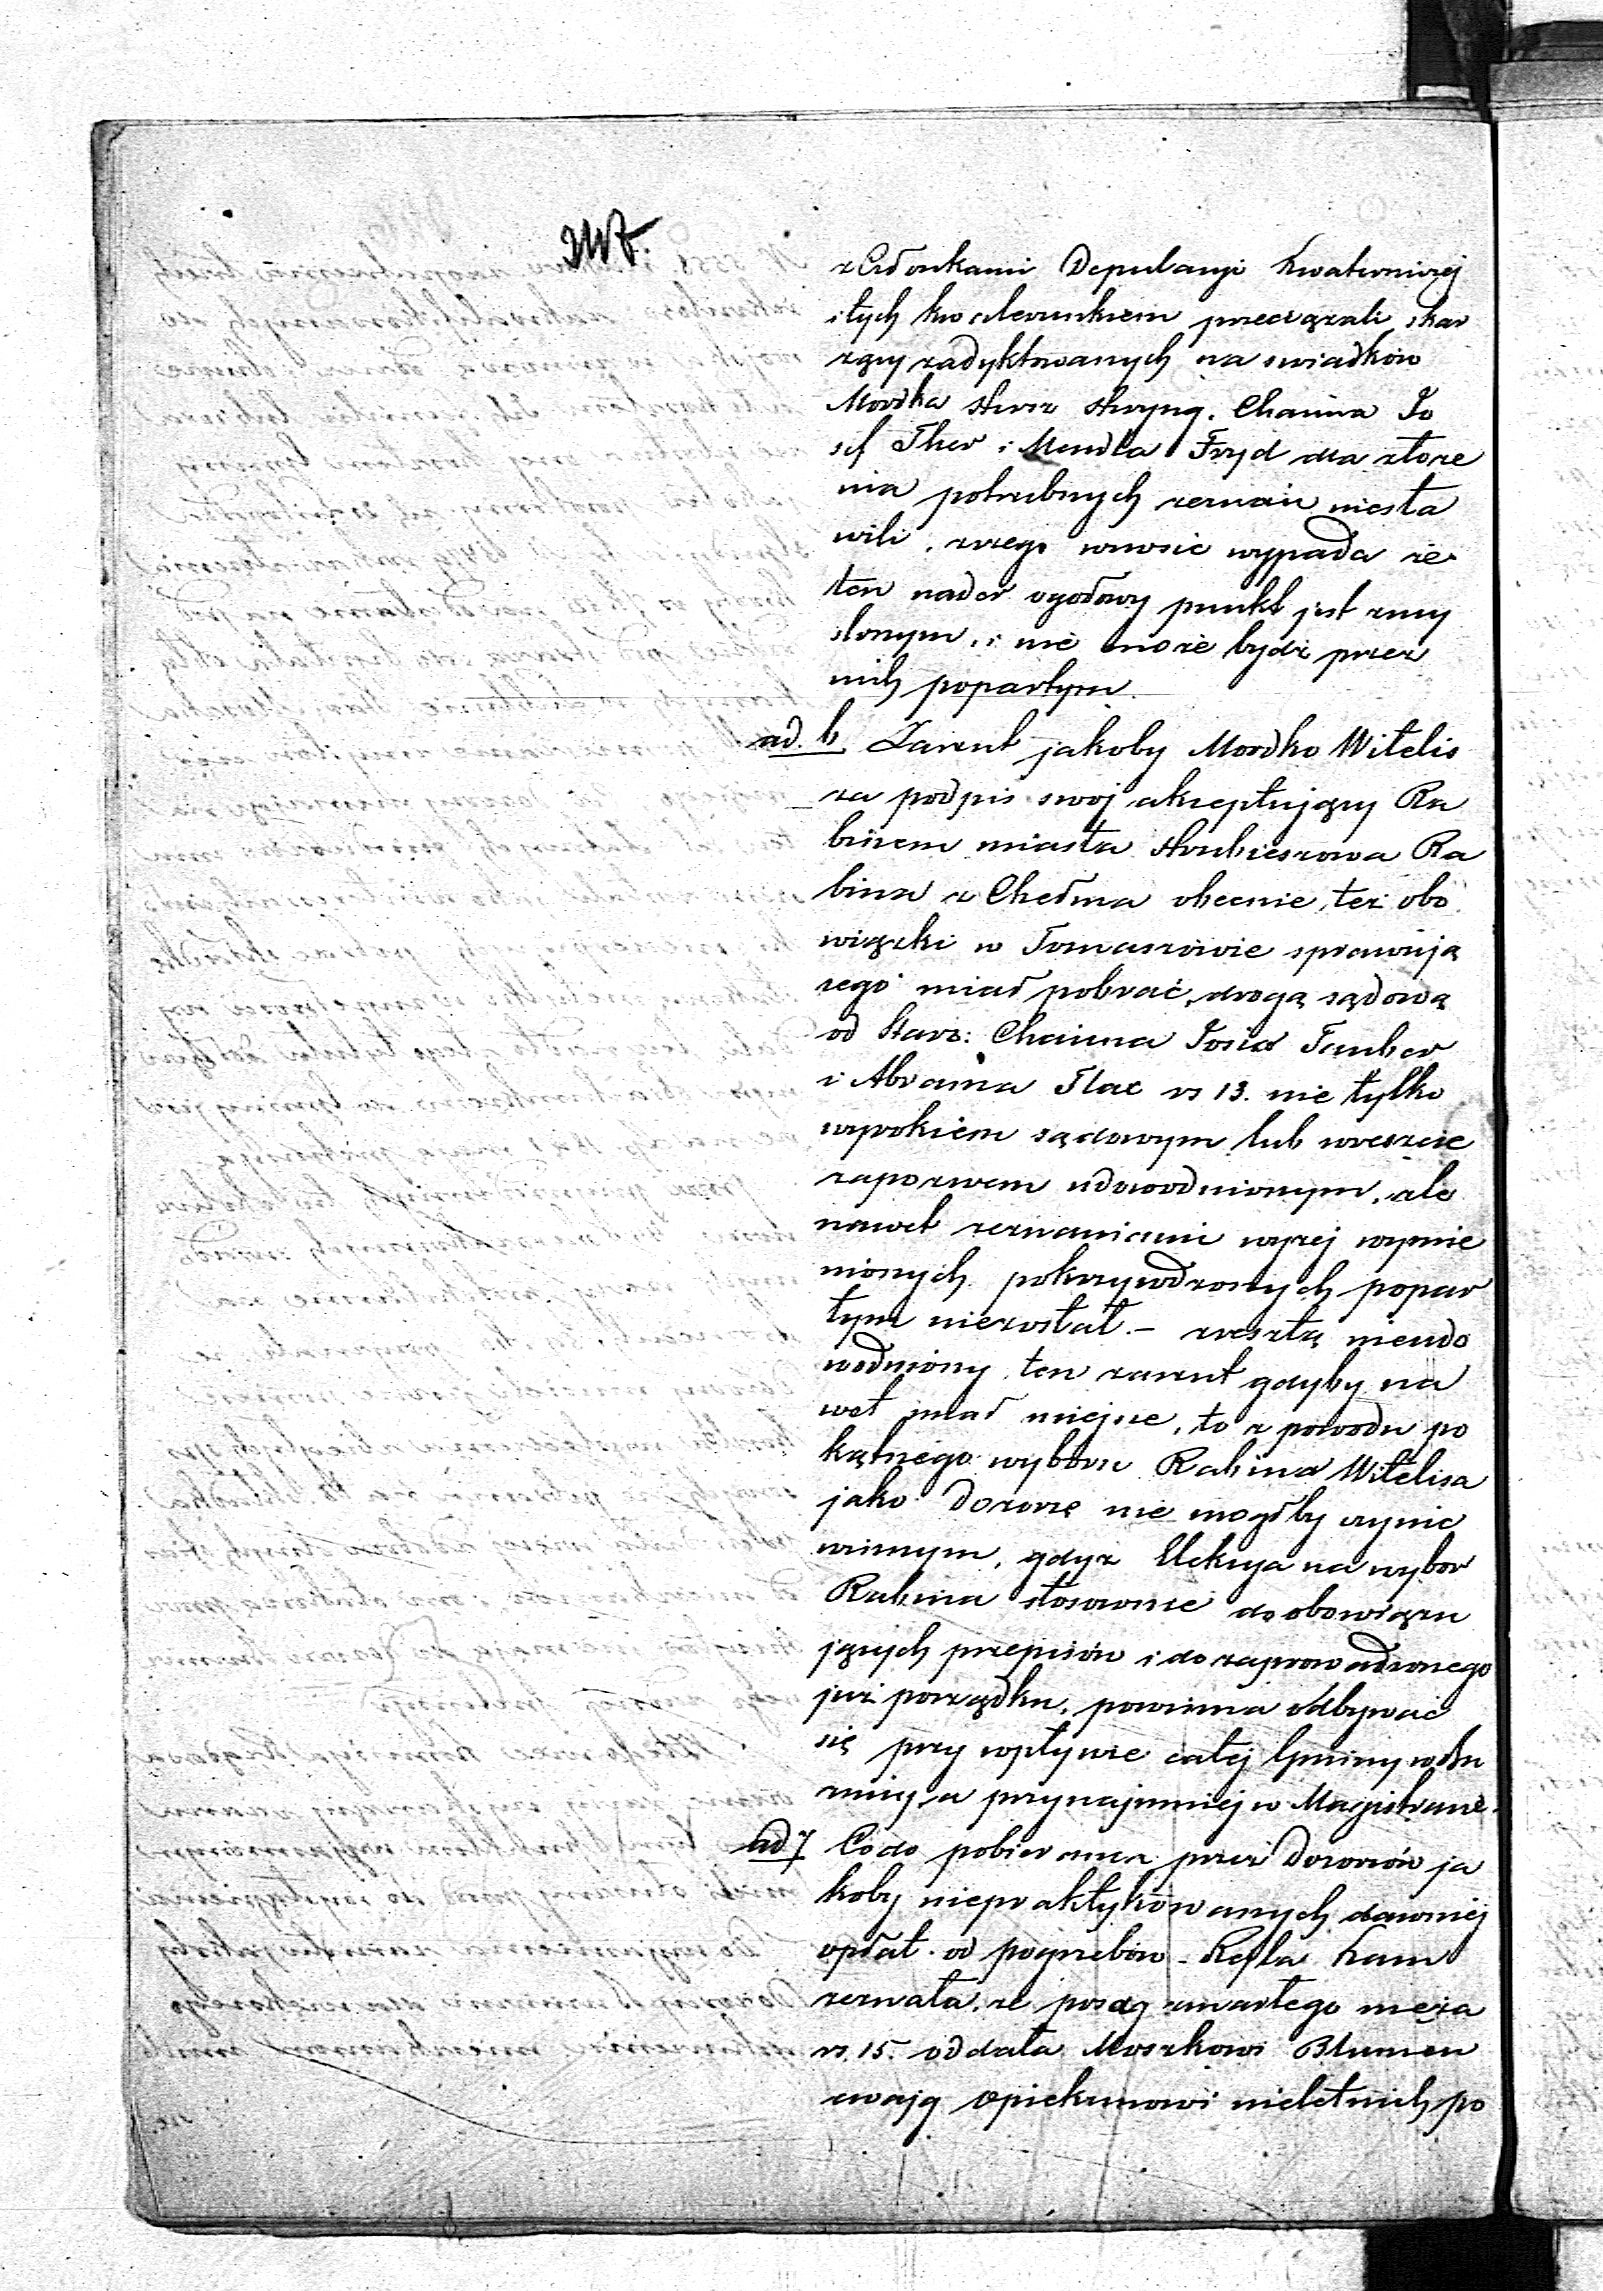 z Członkami Deputacyi Kwaterniczej
i tych kwaterunkiem przeciążali skar
żący zadyktowanych na swiadków
Mordka Chaima Jo
sef i Mendla Fryd dla złoże
nia potrzebnych zeznań niesta
wili, z czego wnosić wypada że
ten nader ogołowy punkt jest zmy
slonym, i nie może bydź przez
nich popartym.
ad. 6 Zarzut jakoby Mordko Witelis
za podpis swoj akceptujący Ra
binem miasta Hrubieszowa Ra
bina z Chełma obecnie też obo
wiązki w Tomaszowie sprawują
cego miał pobrać drogą sądową
od Starz: Chaima Josia Tauber
i Abrama Flac rs 13. nie tylko
wyrokiem sądowym lub wreszcie
zapozwem udowodnionym, ale
nawet zeznaniami wyżej wymie
nionych pokrzywdzonych popar
tym niezostał. – zresztą nieudo
wodniony ten zarzut gdyby na
wet miał miejsce, to z powodu po
kątnego wyboru Rabina Witelisa
jako Dozorcę nie mogłby czynić
winnym, gdyż Elekcya na wybor
Rabina stosownie do obowiązu
jących przepisów i do zaprowadzonego
już porządku, powinna odbywać
się przy wpływie całej Gminy w Bu
znicy a przynajmniej w Magistracie.
ad 7 Co do pobierania przez Dozorców ja
koby niepraktykowanych dawniej
opłat od pogrzebów – Ram
zeznała, że posag zmarłego męża
rs. 15. oddała Moszkowi Blumen
cwajg opiekunowi nieletnich po